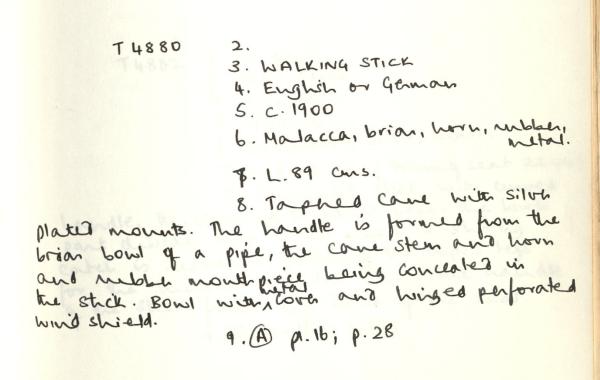 T 4880 2.
3. WALKING STICK
4. English or German
5. c. 1900
6. Malacca, briar, horn, rubber,
metal.
7. L. 89 cms.
8. Tapered cane with silver
plated mounts. The handle is formed from the
briar bowl of a pipe, the cane stem and horn
and rubber mouthpiece being concealed in
the stick. Bowl with metal cover and hinged perforated
wind shield.
9. A pl. 16; p. 28